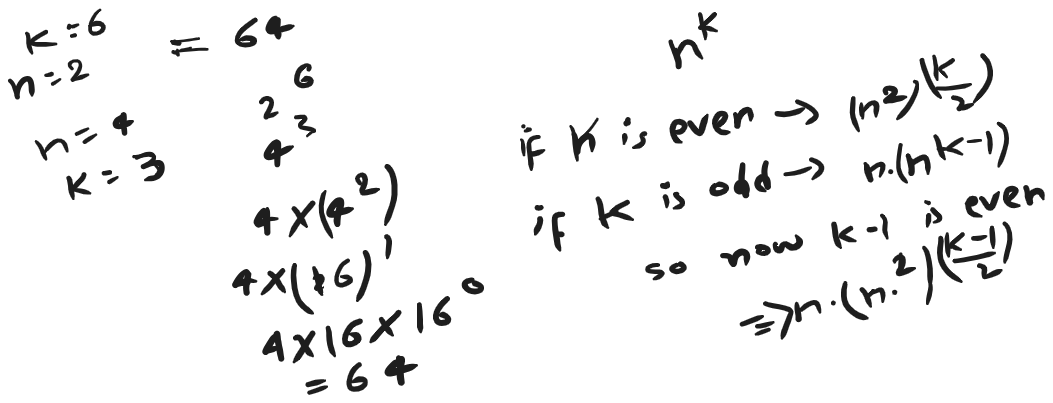 k=6
n=2
= 64
n=4
k=3
2^6
4^3
4×(4^2)
4×(16)^1
4×16×16^0
= 64
n^k
if k is even → (n^2)^(k/2)
if k is odd → n.(n^k-1)
so now k-1 is even
⇒ n.(n.^2)^(k-1/2)